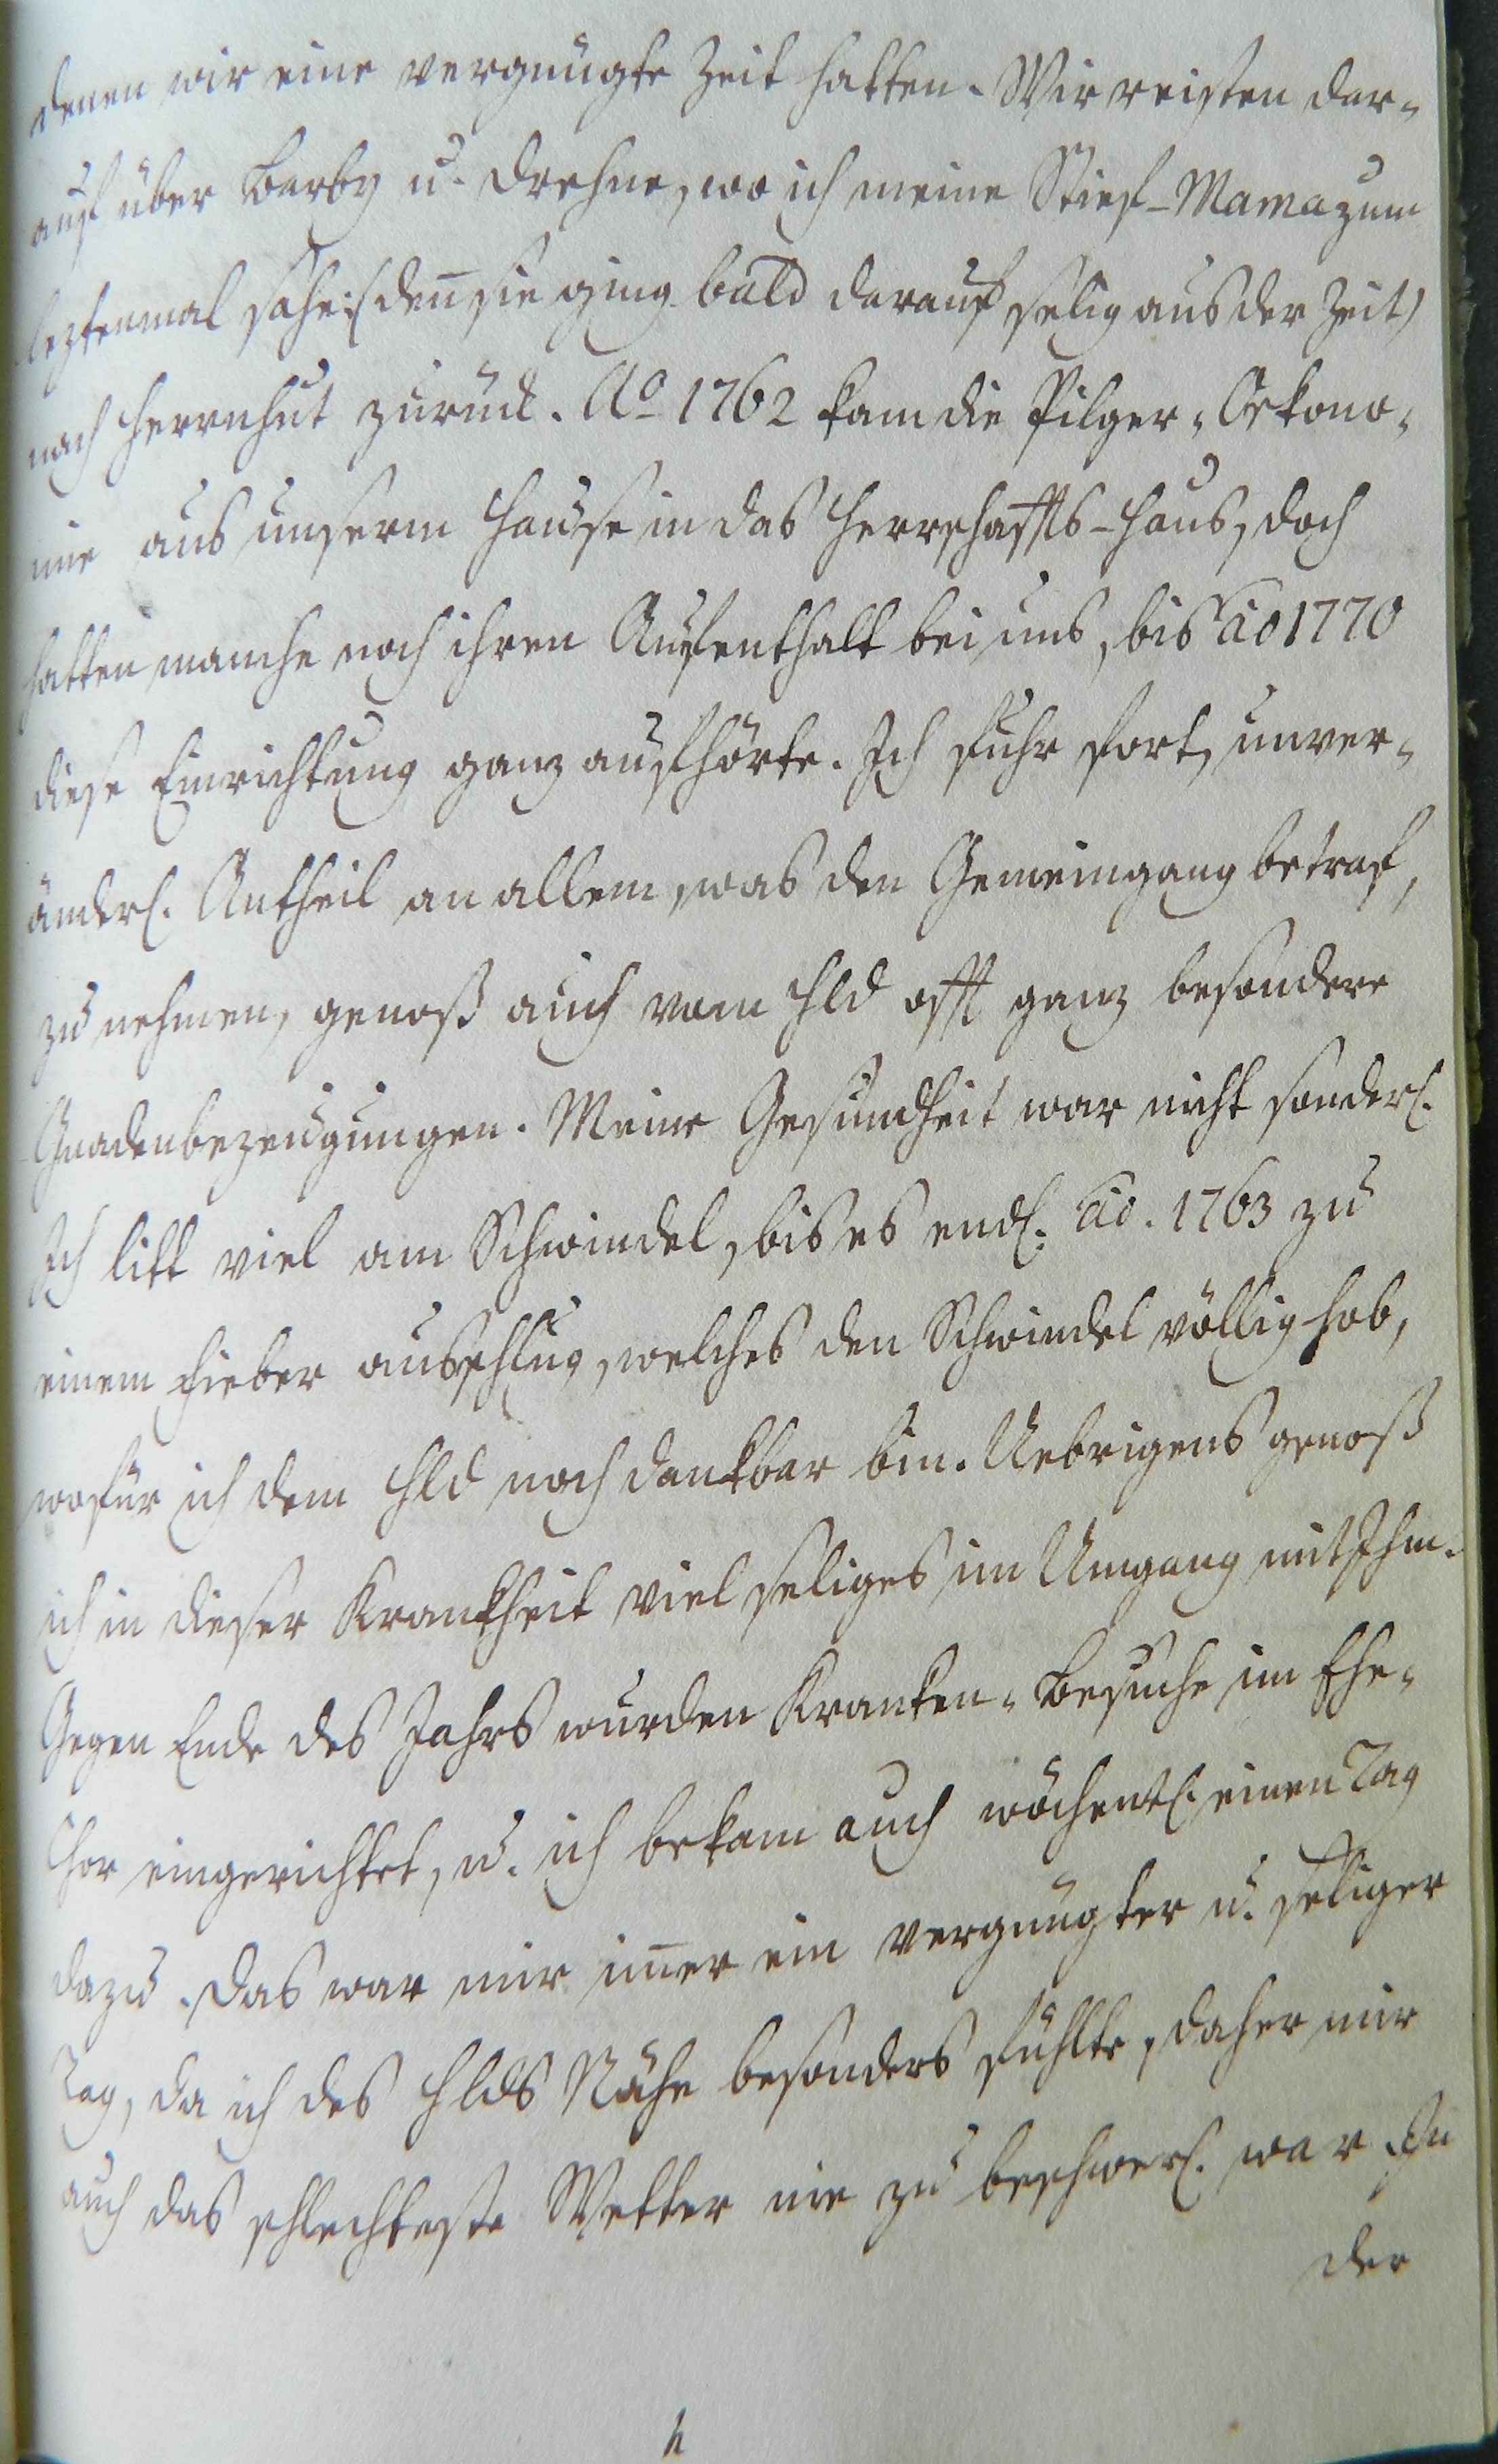 denen wir eine vergnügte Zeit hatten. Wir reisten dar-
auf über Barby u. Drehne, wo ich meine Stief-Mama zum
leztenmal sahe: (den̄ sie ging bald darauf selig aus der Zeit)
nach Herrnhut zurück. Ao 1762 kam die Pilger-Oekono-
mie aus unserm Hause in das Herrschaffts-Haus, doch
hatten manche noch ihren Aufenthalt bei uns, bis Ao 1770
diese Einrichtung ganz aufhörte. Ich fuhr fort, unver-
änderl. Antheil an allem, was den Gemeingang betraf,
zu nehmen, genoß auch vom Hld offt ganz besondere
Gnadenbezeugungen. Meine Gesundheit war nicht sonderl.
Ich litt viel am Schwindel, bis es endl. Ao. 1763 zu
einem Fieber ausschlug, welches den Schwindel völlig hob,
wofür ich dem Hld noch dankbar bin. Uebrigens genoß
ich in dieser Krankheit viel seliges im Umgang mit Ihm.
Gegen Ende des Jahrs wurden Kranken-Besuche im Ehe-
Chor eingerichtet, u. ich bekam auch wöchentl. einen Tag
dazu. Das war mir im̄er ein vergnügter u. seliger
Tag, da ich des Hlds Nähe besonders fühlte, daher mir
auch das schlechteste Wetter nie zu beschwerl. war. In
der